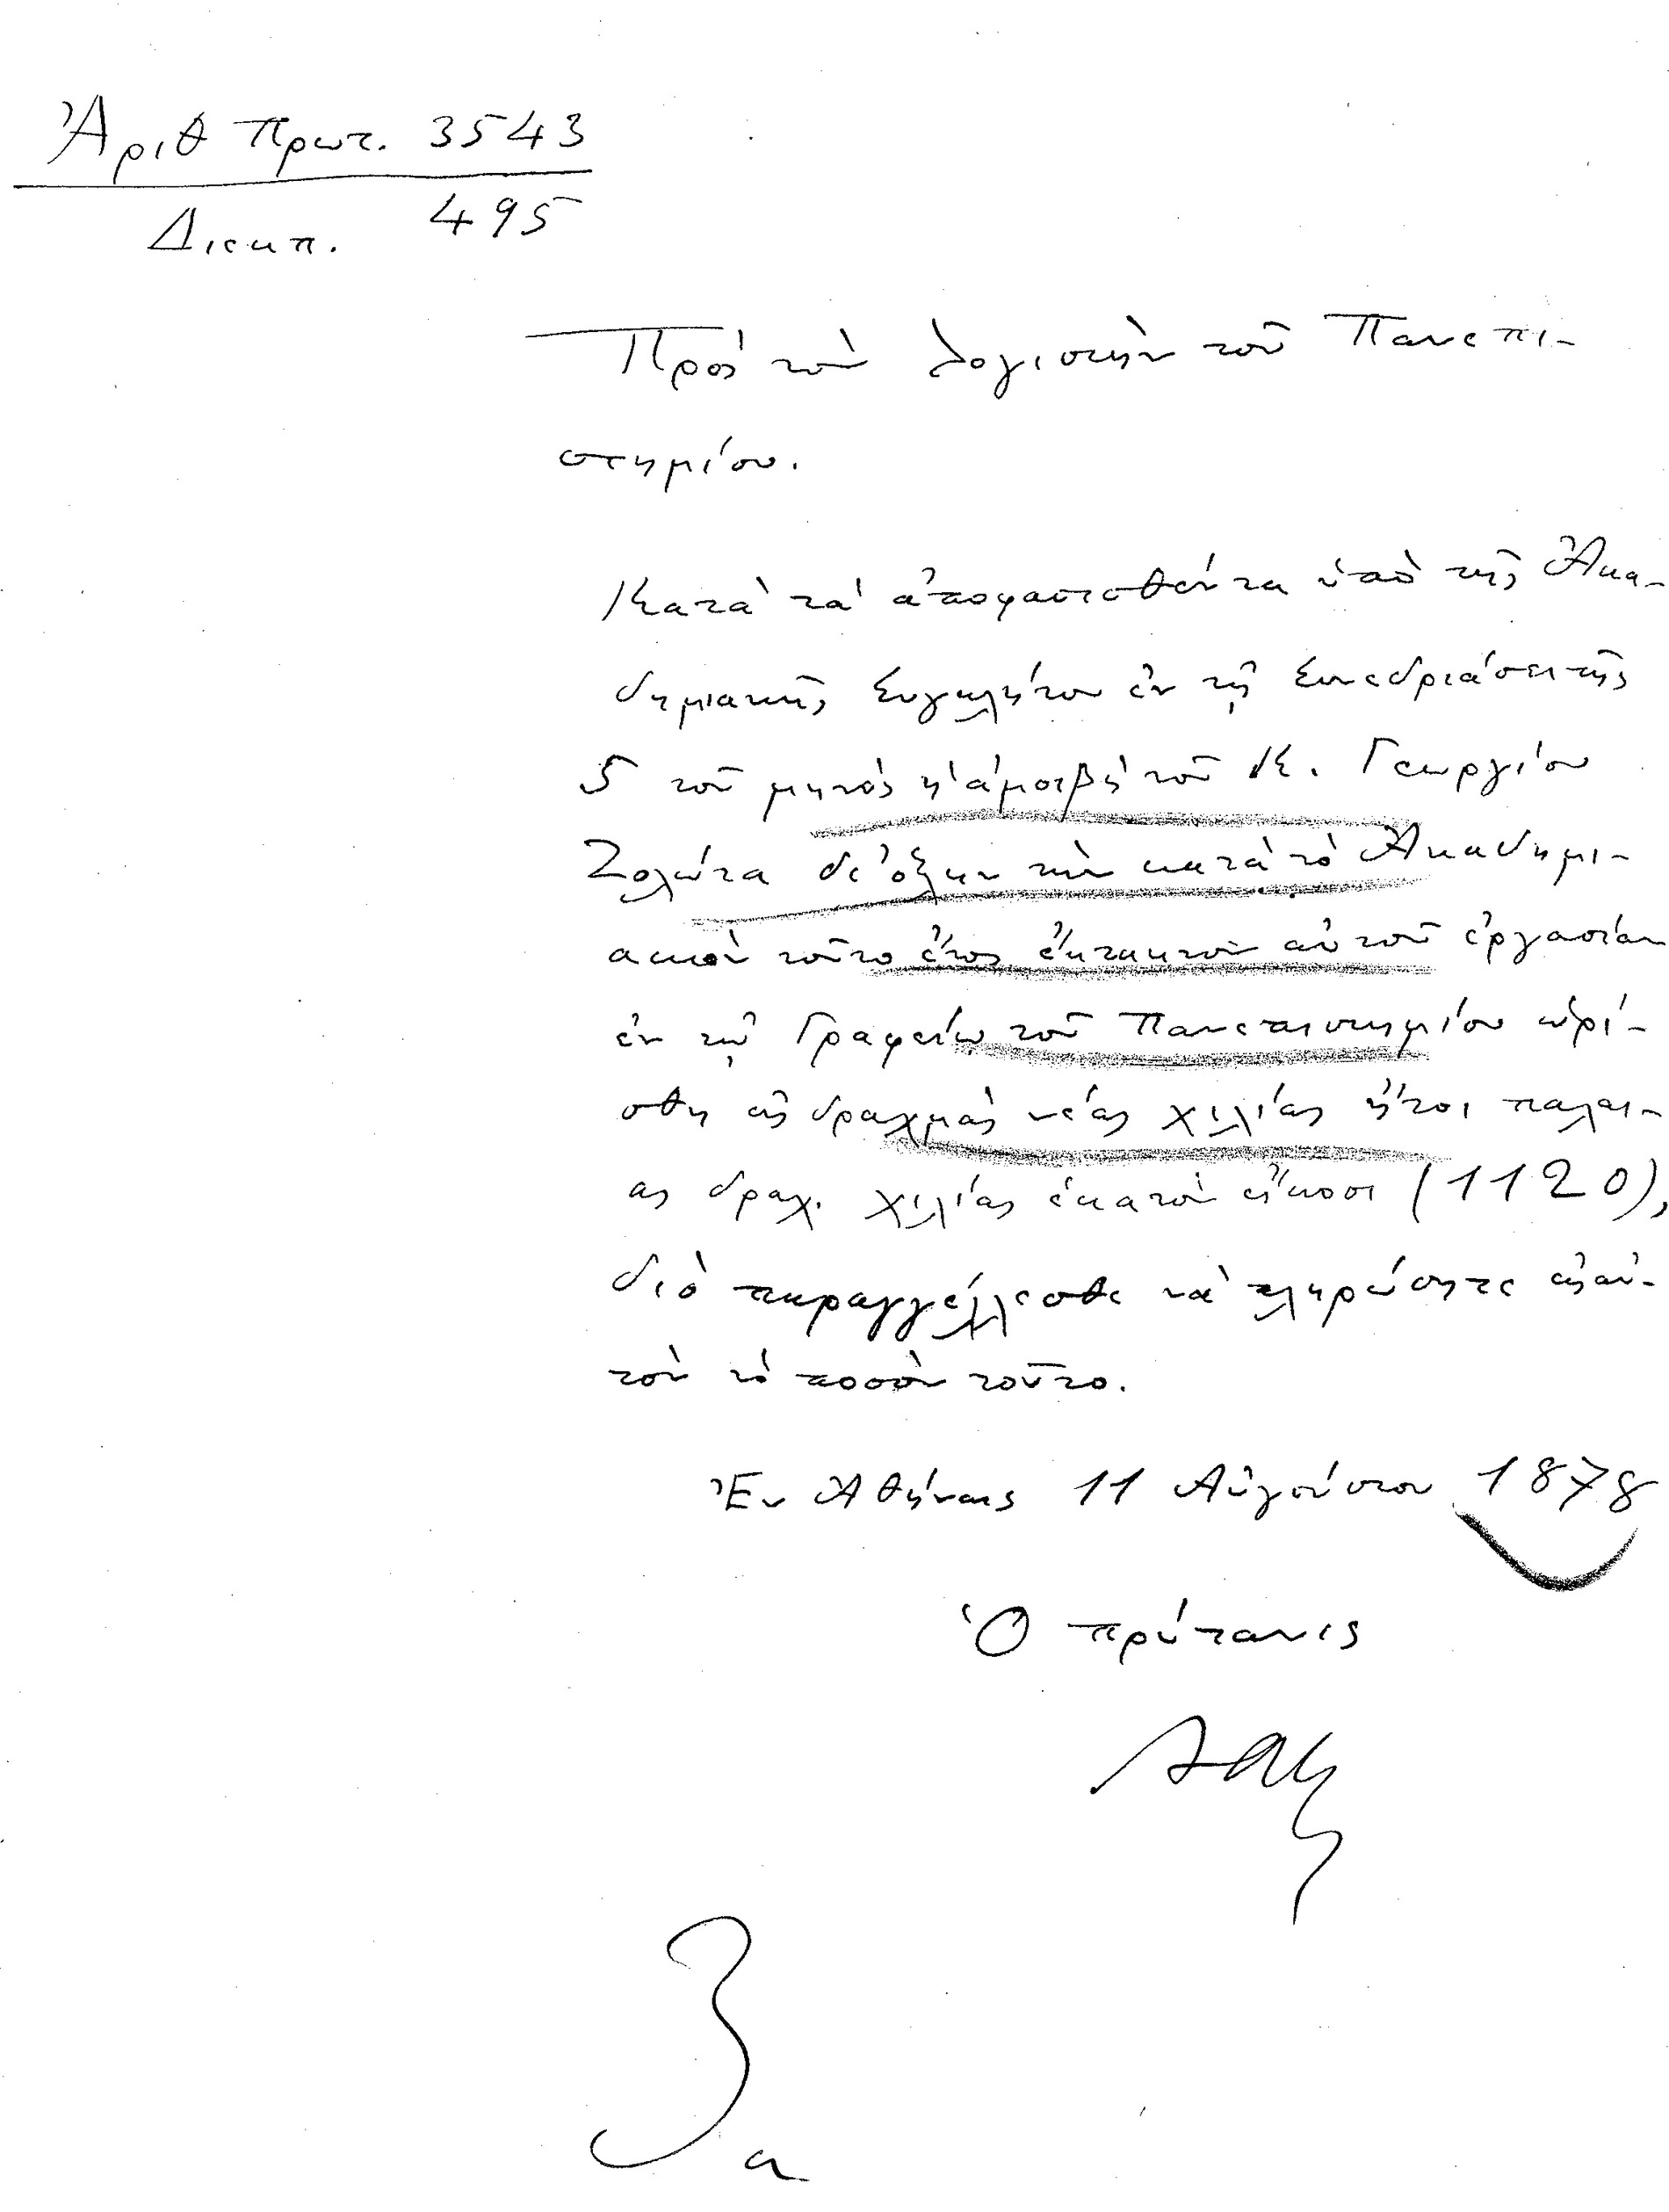 Ἀριθ Πρωτ. 3543
Διεκπ. 495
Πρὸς τὸν Λογιστὴν τοῦ Πανεπι-
στημίου.
Κατὰ τὰ ἀποφασισθέντα ὑπὸ τῆς Ἀκα-
δημιακῆς Συγκλήτου ἐν τῇ Συνεδριάσει τῆς
5 τοῦ μηνὸς ἡ ἀμοιβὴ τοῦ Κ. Γεωργίου
Ζολώτα δι' ὅλην τὴν κατὰ τὸ Ἀκαδημι-
ακὸν τοῦτο ἔτος ἔκτακτον αὐτοῦ ἐργασίαν
ἐν τῷ Γραφείῳ τοῦ Πανεπιστημίου ὡρί-
σθη εἰς δραχμὰς νέας χιλίας ἤτοι παλαι-
ας δραχ. χιλίας ἑκατὸν εἴκοσι (1120),
διὸ παραγγέλλεσθε νὰ πληρώσητε εἰς αὐ-
τὸν τὸ ποσὸν τοῦτο.
Ἐν Ἀθήναις 11 Αὐγούστου 1878
Ὁ πρύτανις
3
α